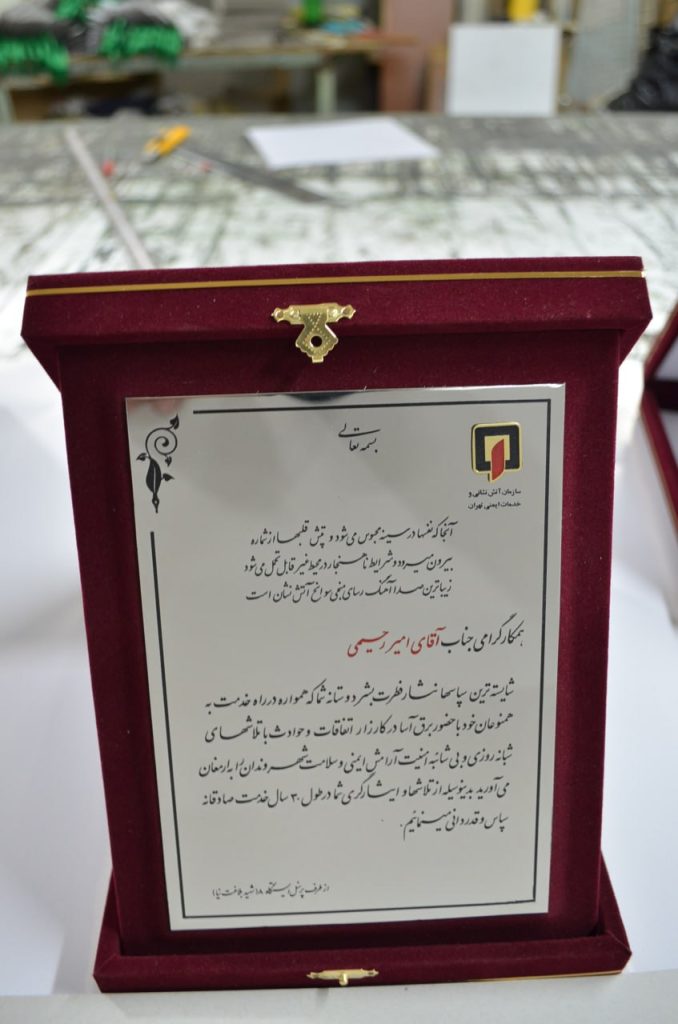 بسمه تعالی
سازمان آتش نشانی و
خدمات ایمنی تهران
آنجا که نفسها در سینه محبوس می شود و تپش قلبها از شماره
بیرون میرود و شرایط ناهنجار در محیط غیر قابل تحمل می شود
زیباترین صدا آهنگ رسای ناجی سوانح آتش نشان است
همکار گرامی جناب آقای امیر رحیمی
شایسته ترین سپاسها نثار فطرت بشر دوستانه شما که همواره در راه خدمت به
همنوعان خود با حضور برق آسا در کارزار اتفاقات و حوادث با تلاشهای
شبانه روزی و بی شائبه امنیت آرامش ایمنی و سلامت شهروندان را به ارمغان
می آورید بدینوسیله از تلاشها و ایثارگری شما در طول ۳۰ سال خدمت صادقانه
سپاس و قدردانی مینمائیم.
(از طرف پرسنل ایستگاه ۱۸ شهید بلاغت نیا)